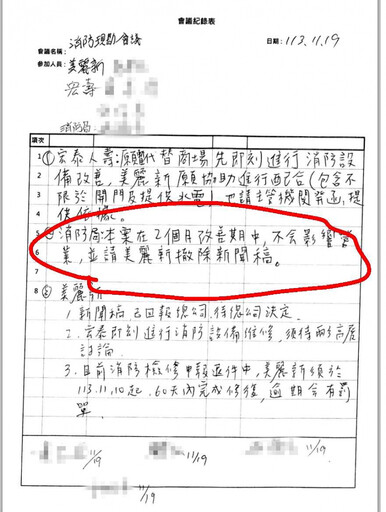 會議紀錄表
會議名稱： 消防現勘會議
日期：113.11.19
參加人員：美麗新
宏壽
消防局：
項次
1 ① 宏泰人壽：願代替商場先即刻進行消防設
2 備改善，美麗新願協助進行配合（包含不
3 限於開門及提供水電），也請主管機關發函，提
4 供依據。
5 ② 消防局：本案在2個月改善期中，不会影響營
6 業，並請美麗新撤除新聞稿。
7
8 ③ 美麗新
1. 新聞稿已回報總公司，待總公司決定。
2. 宏泰即刻進行消防設備維修，須待兩方高層
討論。
3. 目前消防檢修申報送件中，美麗新須於
113.11.10起，60天內完成修復，逾期会有罰
單。
11/19
11/19
11/19
11/19